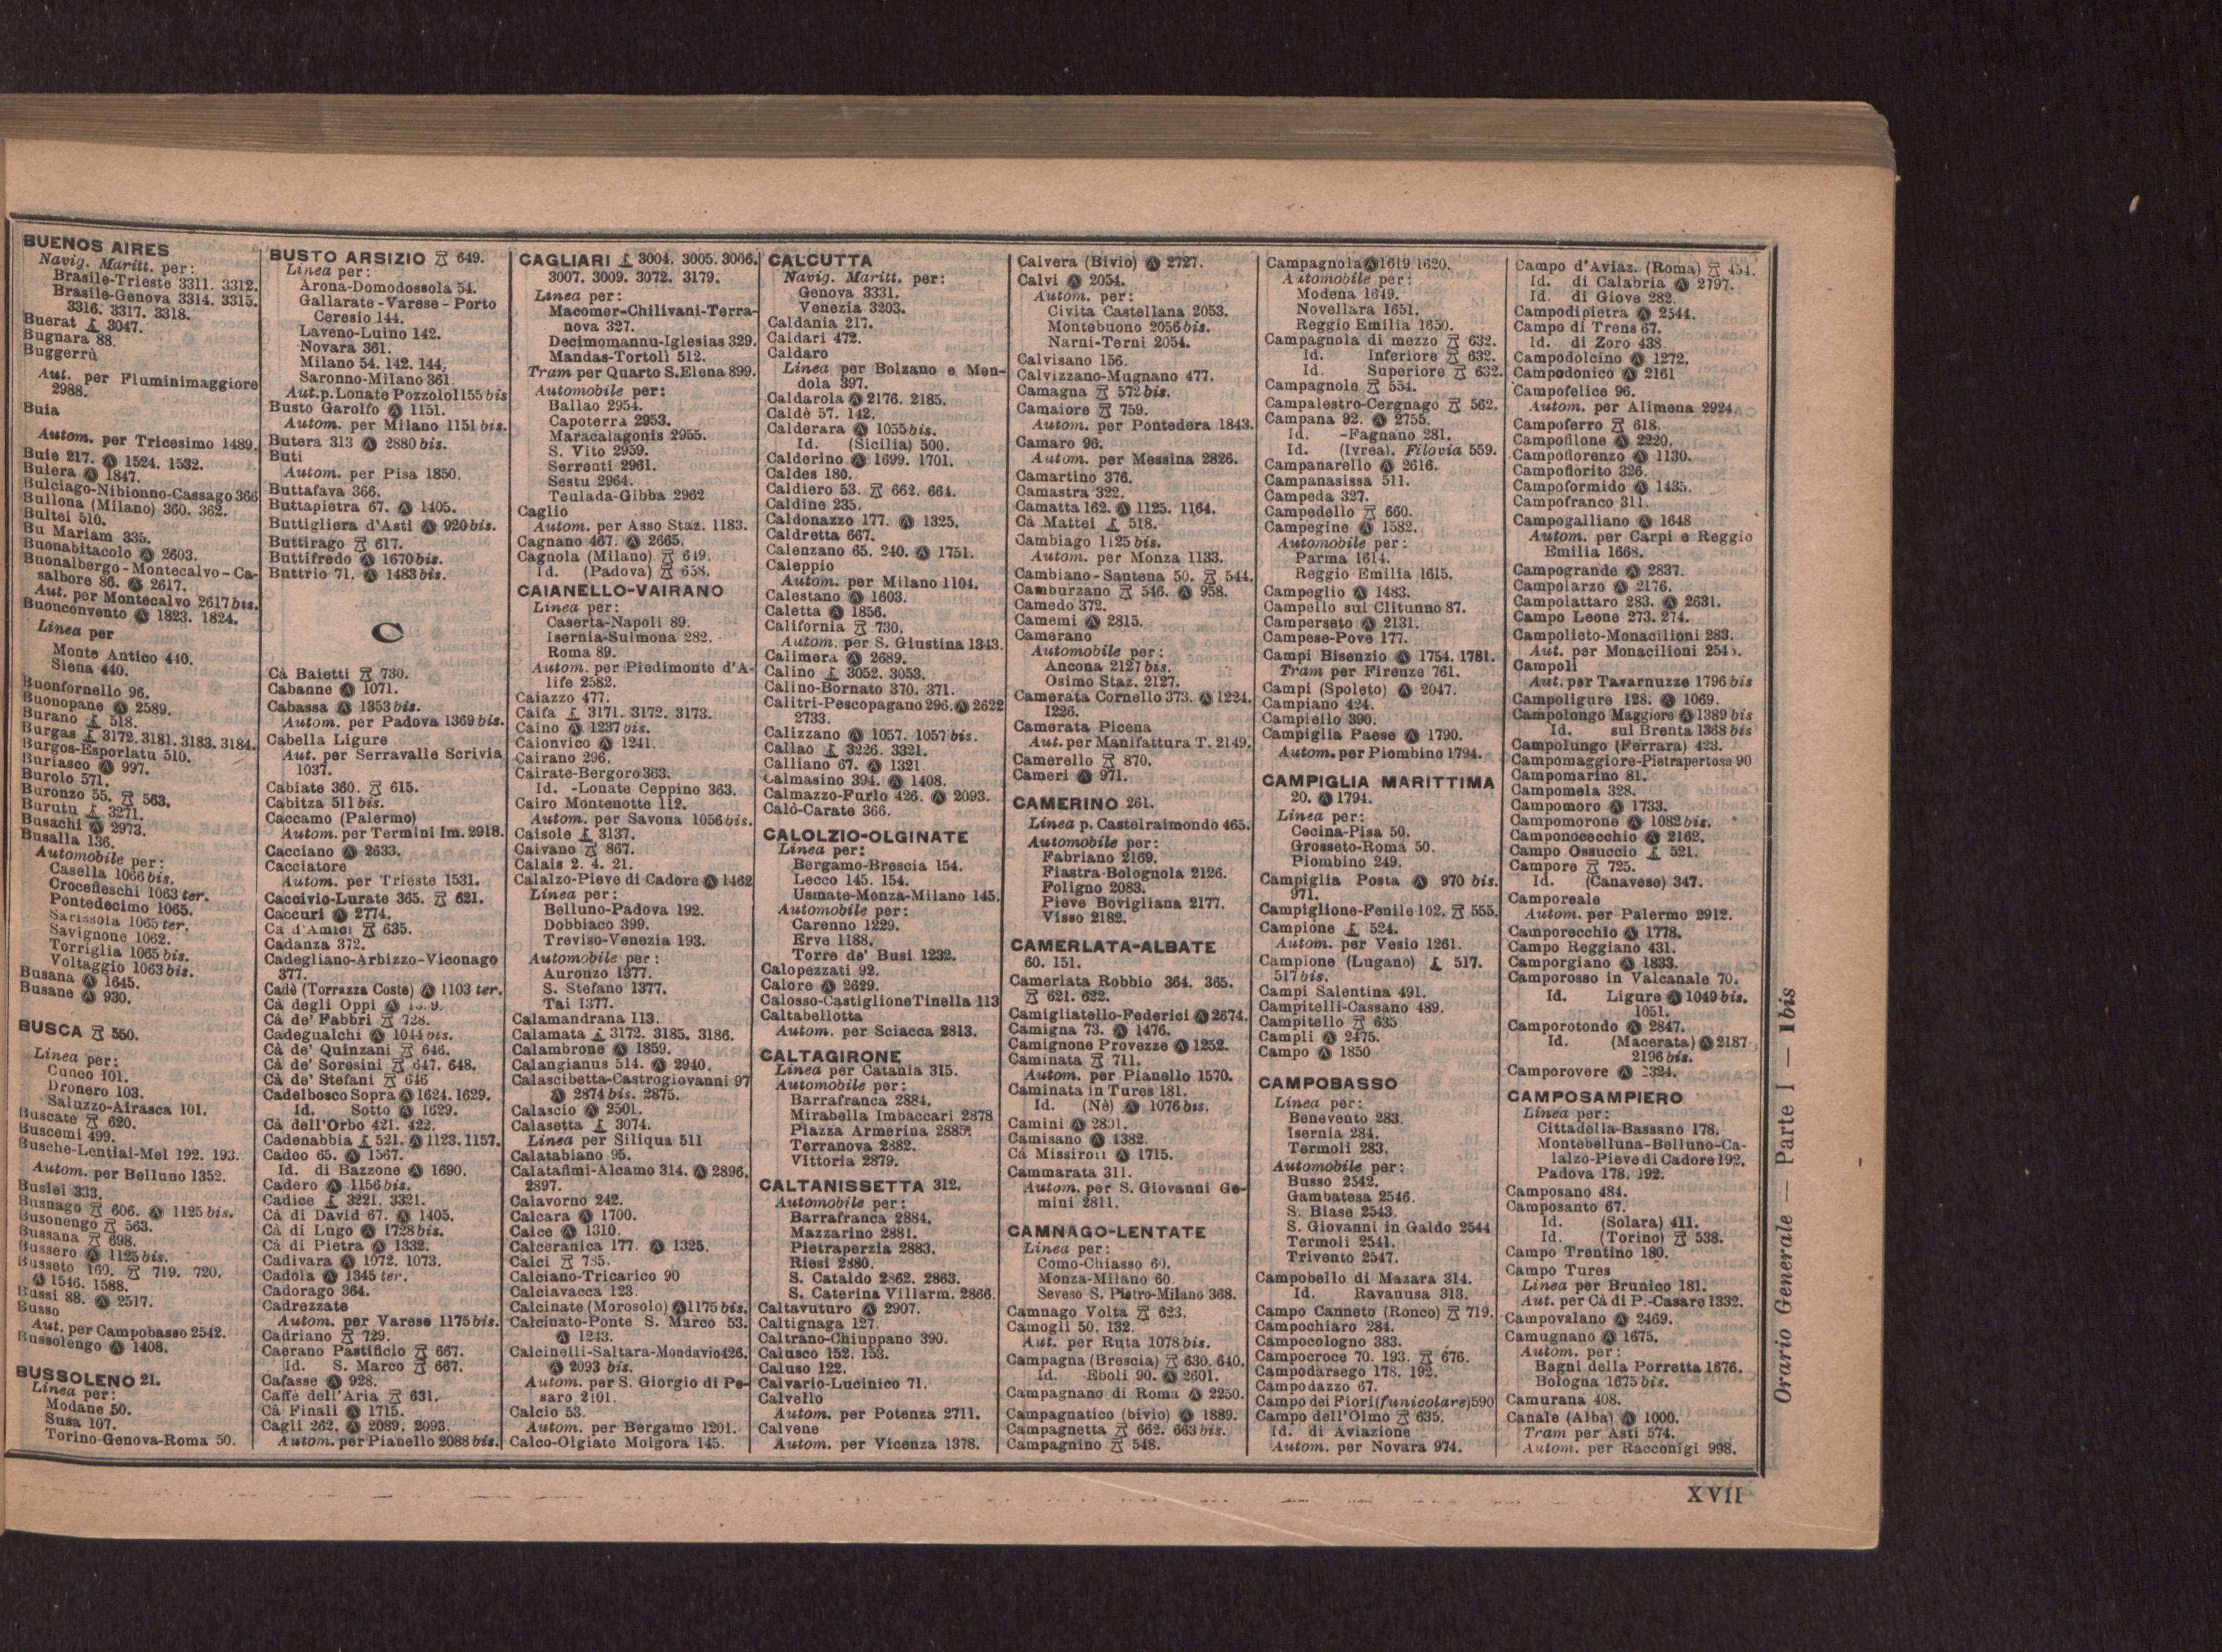 BUENOS AIRES
Navig. Maritt. per:
Brasile-Trieste 3311. 3312.
Brasile-Genova 3314. 3315.
3316. 3317. 3318.
Buerat 3047.
Bugnara 88.
Buggerrù
Aut. per Fluminimaggiore
2988.
Buia
Autom. per Tricesimo 1489.
Buie 217. Ⓐ 1524. 1532.
Bulera Ⓐ 1847.
Bulciago-Nibionno-Cassago 366
Bullona (Milano) 360. 362.
Bultei 510.
Bu Mariam 335.
Buonabitacolo Ⓐ 2603.
Buonalbergo-Montecalvo-Ca-
salbore 86. Ⓐ 2617.
Aut. per Montecalvo 2617 bis.
Buonconvento Ⓐ 1823. 1824.
Linea per
Monte Antico 440.
Siena 440.
Buonfornello 96.
Buonopane Ⓐ 2589.
Burano 518.
Burgas 3172. 3181. 3183. 3184.
Burgos-Esporlatu 510.
Buriasco Ⓐ 997.
Burolo 571.
Buronzo 55. 563.
Burutu 3271.
Busachi Ⓐ 2973.
Busalla 136.
Automobile per:
Casella 1066 bis.
Crocefieschi 1063 ter.
Pontedecimo 1065.
Sarissola 1065 ter.
Savignone 1062.
Torriglia 1065 bis.
Voltaggio 1063 bis.
Busana Ⓐ 1645.
Busane Ⓐ 930.
BUSCA 550.
Linea per:
Cuneo 101.
Dronero 103.
Saluzzo-Airasca 101.
Buscate 620.
Buscemi 499.
Busche-Lentiai-Mel 192. 193.
Autom. per Belluno 1352.
Buslei 333.
Busnago 606. Ⓐ 1125 bis.
Busonengo 563.
Bussana 698.
Bussero Ⓐ 1125 bis.
Busseto 160. 719. 720.
Ⓐ 1546. 1588.
Bussi 88. Ⓐ 2517.
Busso
Aut. per Campobasso 2542.
Bussolengo Ⓐ 1408.
BUSSOLENO 21.
Linea per:
Modane 50.
Susa 107.
Torino-Genova-Roma 50.
BUSTO ARSIZIO 649.
Linea per:
Arona-Domodossola 54.
Gallarate-Varese-Porto
Ceresio 144.
Laveno-Luino 142.
Novara 361.
Milano 54. 142. 144.
Saronno-Milano 361.
Aut. p. Lonate Pozzolo 1155 bis
Busto Garolfo Ⓐ 1151.
Autom. per Milano 1151 bis.
Butera 313 Ⓐ 2880 bis.
Buti
Autom. per Pisa 1850.
Buttafava 366.
Buttapietra 67. Ⓐ 1405.
Buttigliera d'Asti Ⓐ 920 bis.
Buttirago 617.
Buttifredo Ⓐ 1670 bis.
Buttrio 71. Ⓐ 1483 bis.
C
Cà Baietti 730.
Cabanne Ⓐ 1071.
Cabassa Ⓐ 1353 bis.
Autom. per Padova 1369 bis.
Cabella Ligure
Aut. per Serravalle Scrivia
1037.
Cabiate 360. 615.
Cabitza 511 bis.
Caccamo (Palermo)
Autom. per Termini Im. 2918.
Cacciano Ⓐ 2633.
Cacciatore
Autom. per Trieste 1531.
Caccivio-Lurate 365. 621.
Caccuri Ⓐ 2774.
Ca d'Amici 635.
Cadanza 372.
Cadegliano-Arbizzo-Viconago
377.
Cadè (Torrazza Coste) Ⓐ 1103 ter.
Cà degli Oppi Ⓐ
Cà de' Fabbri 728.
Cadegualchi Ⓐ 1044 bis.
Cà de' Quinzani 646.
Cà de' Soresini 647. 648.
Cà de' Stefani 646
Cadelbosco Sopra Ⓐ 1624. 1629.
Id. Sotto Ⓐ 1629.
Cà dell'Orbo 421. 422.
Cadenabbia 521. Ⓐ 1123. 1157.
Cadeo 65. Ⓐ 1567.
Id. di Bazzone Ⓐ 1690.
Cadero Ⓐ 1156 bis.
Cadice 3221. 3321.
Cà di David 67. Ⓐ 1405.
Cà di Lugo Ⓐ 1728 bis.
Cà di Pietra Ⓐ 1332.
Cadivara Ⓐ 1072. 1073.
Cadola Ⓐ 1345 ter.
Cadorago 364.
Cadrezzate
Autom. per Varese 1175 bis.
Cadriano 729.
Caerano Pastificio 667.
Id. S. Marco 667.
Cafasse Ⓐ 928.
Caffè dell'Aria 631.
Cà Finali Ⓐ 1715.
Cagli 262. Ⓐ 2089. 2093.
Autom. per Pianello 2088 bis.
CAGLIARI 3004. 3005. 3006.
3007. 3009. 3072. 3179.
Linea per:
Macomer-Chilivani-Terra-
nova 327.
Decimomannu-Iglesias 329.
Mandas-Tortolì 512.
Tram per Quarto S. Elena 899.
Automobile per:
Ballao 2954.
Capoterra 2953.
Maracalagonis 2955.
S. Vito 2959.
Serrenti 2961.
Sestu 2964.
Teulada-Gibba 2962
Caglio
Autom. per Asso Staz. 1183.
Cagnano 467. Ⓐ 2665.
Cagnola (Milano) 649.
Id. (Padova) 658.
CAIANELLO-VAIRANO
Linea per:
Caserta-Napoli 89.
Isernia-Sulmona 282.
Roma 89.
Autom. per Piedimonte d'A-
life 2582.
Caiazzo 477.
Caifa 3171. 3172. 3173.
Caino Ⓐ 1237 bis.
Caionvico Ⓐ 1241.
Cairano 296.
Cairate-Bergoro 363.
Id. -Lonate Ceppino 363.
Cairo Montenotte 112.
Autom. per Savona 1056 bis.
Caisole 3137.
Caivano 867.
Calais 2. 4. 21.
Calalzo-Pieve di Cadore Ⓐ 1462
Linea per:
Belluno-Padova 192.
Dobbiaco 399.
Treviso-Venezia 193.
Automobile per:
Auronzo 1377.
S. Stefano 1377.
Tai 1377.
Calamandrana 113.
Calamata 3172. 3185. 3186.
Calambrone Ⓐ 1859.
Calangianus 514. Ⓐ 2940.
Calascibetta-Castrogiovanni 97
Ⓐ 2874 bis. 2875.
Calascio Ⓐ 2501.
Calasetta 3074.
Linea per Siliqua 511
Calatabiano 95.
Calatafimi-Alcamo 314. Ⓐ 2896.
2897.
Calavorno 242.
Calcara Ⓐ 1700.
Calce Ⓐ 1310.
Calceranica 177. Ⓐ 1325.
Calci 735.
Calciano-Tricarico 90
Calciavacca 123.
Calcinate (Morosolo) Ⓐ 1175 bis.
Calcinato-Ponte S. Marco 53.
Ⓐ 1243.
Calcinelli-Saltara-Mondavio 426.
Ⓐ 2093 bis.
Autom. per S. Giorgio di Pe-
saro 2101.
Calcio 53.
Autom. per Bergamo 1201.
Calco-Olgiate Molgora 145.
CALCUTTA
Navig. Maritt. per:
Genova 3331.
Venezia 3203.
Caldania 217.
Caldari 472.
Caldaro
Linea per Bolzano e Men-
dola 397.
Caldarola Ⓐ 2176. 2185.
Caldè 57. 142.
Calderara Ⓐ 1055 bis.
Id. (Sicilia) 500.
Calderino Ⓐ 1699. 1701.
Caldes 180.
Caldiero 53. 662. 664.
Caldine 235.
Caldonazzo 177. Ⓐ 1325.
Caldretta 667.
Calenzano 65. 240. Ⓐ 1751.
Caleppio
Autom. per Milano 1104.
Calestano Ⓐ 1603.
Caletta Ⓐ 1856.
California 730.
Autom. per S. Giustina 1343.
Calimera Ⓐ 2689.
Calino 3052. 3053.
Calino-Bornato 370. 371.
Calitri-Pescopagano 296. Ⓐ 2622
2733.
Calizzano Ⓐ 1057. 1057 bis.
Callao 3226. 3321.
Calliano 67. Ⓐ 1321
Calmasino 394. Ⓐ 1408.
Calmazzo-Furlo 426. Ⓐ 2093.
Calò-Carate 366.
CALOLZIO-OLGINATE
Linea per:
Bergamo-Brescia 154.
Lecco 145. 154.
Usmate-Monza-Milano 145.
Automobile per:
Carenno 1229.
Erve 1188.
Torre de' Busi 1232.
Calopezzati 92.
Calore Ⓐ 2629.
Calosso-Castiglione Tinella 113
Caltabellotta
Autom. per Sciacca 2813.
CALTAGIRONE
Linea per Catania 315.
Automobile per:
Barrafranca 2884.
Mirabella Imbaccari 2878
Piazza Armerina 2885.
Terranova 2882.
Vittoria 2879.
CALTANISSETTA 312.
Automobile per:
Barrafranca 2884.
Mazzarino 2881.
Pietraperzia 2883.
Riesi 2880.
S. Cataldo 2862. 2863.
S. Caterina Villarm. 2866.
Caltavuturo Ⓐ 2907.
Caltignaga 127.
Caltrano-Chiuppano 390.
Calusco 152. 153.
Caluso 122.
Calvario-Lucinico 71.
Calvello
Autom. per Potenza 2711.
Calvene
Autom. per Vicenza 1378.
Calvera (Bivio) Ⓐ 2727.
Calvi Ⓐ 2054.
Autom. per:
Civita Castellana 2053.
Montebuono 2056 bis.
Narni-Terni 2054.
Calvisano 156.
Calvizzano-Mugnano 477.
Camagna 572 bis.
Camaiore 759.
Autom. per Pontedera 1843.
Camaro 96.
Autom. per Messina 2826.
Camartino 376.
Camastra 322.
Camatta 162. Ⓐ 1125. 1164.
Cà Mattei 518.
Cambiago 1125 bis.
Autom. per Monza 1133.
Cambiano-Santena 50. 544.
Camburzano 546. Ⓐ 958.
Camedo 372.
Camemi Ⓐ 2815.
Camerano
Automobile per:
Ancona 2127 bis.
Osimo Staz. 2127.
Camerata Cornello 373. Ⓐ 1224.
1226.
Camerata Picena
Aut. per Manifattura T. 2149.
Camerello 870.
Cameri Ⓐ 971.
CAMERINO 261.
Linea p. Castelraimondo 465.
Automobile per:
Fabriano 2169.
Fiastra-Bolognola 2126.
Foligno 2083.
Pieve Bovigliana 2177.
Visso 2182.
CAMERLATA-ALBATE
60. 151.
Camerlata Robbio 364. 365.
621. 622.
Camigliatello-Federici Ⓐ 2674.
Camigna 73. Ⓐ 1476.
Camignone Provezze Ⓐ 1252.
Caminata 711.
Autom. per Pianello 1570.
Caminata in Tures 181.
Id. (Nè) Ⓐ 1076 bis.
Camini Ⓐ 2801.
Camisano Ⓐ 1382.
Cà Missiroli Ⓐ 1715.
Cammarata 311.
Autom. per S. Giovanni Ge-
mini 2811.
CAMNAGO-LENTATE
Linea per:
Como-Chiasso 60.
Monza-Milano 60.
Seveso S. Pietro-Milano 368.
Camnago Volta 623.
Camogli 50. 132.
Aut. per Ruta 1078 bis.
Campagna (Brescia) 630. 640.
Id. Eboli 90. Ⓐ 2601.
Campagnano di Roma Ⓐ 2250.
Campagnatico (bivio) Ⓐ 1889.
Campagnetta 662. 663 bis.
Campagnino 548.
Campagnola Ⓐ 1619 1620.
Automobile per:
Modena 1649.
Novellara 1651.
Reggio Emilia 1650.
Campagnola di mezzo 632.
Id. Inferiore 632.
Id. Superiore 632.
Campagnole 554.
Campalestro-Cergnago 562.
Campana 92. Ⓐ 2755.
Id. -Fagnano 281.
Id. (Ivrea). Filovia 559.
Campanarello Ⓐ 2616.
Campanasissa 511.
Campeda 327.
Campedello 660.
Campegine Ⓐ 1582.
Automobile per:
Parma 1614.
Reggio Emilia 1615.
Campeglio Ⓐ 1483.
Campello sul Clitunno 87.
Camperseto Ⓐ 2131.
Campese-Pove 177.
Campi Bisenzio Ⓐ 1754. 1781.
Tram per Firenze 761.
Campi (Spoleto) Ⓐ 2047.
Campiano 424.
Campiello 390.
Campiglia Paese Ⓐ 1790.
Autom. per Piombino 1794.
CAMPIGLIA MARITTIMA
20. Ⓐ 1794.
Linea per:
Cecina-Pisa 50.
Grosseto-Roma 50.
Piombino 249.
Campiglia Posta Ⓐ 970 bis.
971.
Campiglione-Fenile 102. 555.
Campione 524.
Autom. per Vesio 1261.
Campione (Lugano) 517.
517 bis.
Campi Salentina 491.
Campitelli-Cassano 489.
Campitello 635
Campli Ⓐ 2475.
Campo Ⓐ 1850
CAMPOBASSO
Linea per:
Benevento 283.
Isernia 284.
Termoli 283.
Automobile per:
Busso 2542.
Gambatesa 2546.
S. Biase 2543.
S. Giovanni in Galdo 2544
Termoli 2541.
Trivento 2547.
Campobello di Mazara 314.
Id. Ravanusa 313.
Campo Canneto (Ronco) 719.
Campochiaro 284.
Campocologno 383.
Campocroce 70. 193. 676.
Campodarsego 178. 192.
Campodazzo 67.
Campo dei Fiori (funicolare) 590
Campo dell'Olmo 635.
Id. di Aviazione
Autom. per Novara 974.
Campo d'Aviaz. (Roma) 454.
Id. di Calabria Ⓐ 2797.
Id. di Giove 282.
Campodipietra Ⓐ 2544.
Campo di Trens 67.
Id. di Zoro 438.
Campodolcino Ⓐ 1272.
Campodonico Ⓐ 2161
Campofelice 96.
Autom. per Alimena 2924.
Campoferro 618.
Campofilone Ⓐ 2220.
Campoflorenzo Ⓐ 1130.
Campoflorito 326.
Campoformido Ⓐ 1435.
Campofranco 311.
Campogalliano Ⓐ 1648
Autom. per Carpi e Reggio
Emilia 1668.
Campogrande Ⓐ 2837.
Campolarzo Ⓐ 2176.
Campolattaro 283. Ⓐ 2631.
Campo Leone 273. 274.
Campolieto-Monacilioni 283.
Aut. per Monacilioni
Campoli
Aut. per Tavarnuzze 1796 bis
Campoligure 128. Ⓐ 1069.
Campolongo Maggiore Ⓐ 1389 bis
Id. sul Brenta 1368 bis
Campolungo (Ferrara) 423.
Campomaggiore-Pietrapertosa 90
Campomarino 81.
Campomela 328.
Campomoro Ⓐ 1733.
Campomorone Ⓐ 1082 bis.
Camponocecchio Ⓐ 2162.
Campo Ossuccio 521.
Campore 725.
Id. (Canavese) 347.
Camporeale
Autom. per Palermo 2912.
Camporecchio Ⓐ 1778.
Campo Reggiano 431.
Camporgiano Ⓐ 1833.
Camporosso in Valcanale 70.
Id. Ligure Ⓐ 1049 bis.
1051.
Camporotondo Ⓐ 2847.
Id. (Macerata) Ⓐ 2187
2196 bis.
Camporovere Ⓐ 1324.
CAMPOSAMPIERO
Linea per:
Cittadella-Bassano 178.
Montebelluna-Belluno-Ca-
lalzo-Pieve di Cadore 192.
Padova 178. 192.
Camposano 484.
Camposanto 67.
Id. (Solara) 411.
Id. (Torino) 538.
Campo Trentino 180.
Campo Tures
Linea per Brunico 181.
Aut. per Cà di P.-Casare 1332.
Campovalano Ⓐ 2469.
Camugnano Ⓐ 1675.
Autom. per:
Bagni della Porretta 1676.
Bologna 1675 bis.
Camurana 408.
Canale (Alba) Ⓐ 1000.
Tram per Asti 574.
Autom. per Racconigi 998.
Orario Generale — Parte I — 1bis
XVII